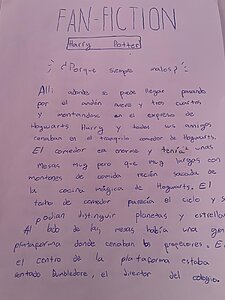 FAN-FICTION
Harry Potter
¿Porque siempre malos?
Alli adonde se puede llegar pasando
por el anden nueve y tres cuartos
y montandose en el expreso de
Hogwarts Harry y todos sus amigos
cenaban en el tranquilo comedor de Hogwarts.
El comedor era enorme y tenía unas
mesas muy pero que muy largas con
montones de comida recién sacada de
la cocina mágica de Hogwarts. El
techo de comedor parecía el cielo y s
podian distinguir planetas y estrella
Al lado de las mesas había una gran
plataforma donde cenaban los profesores. E
el centro de la plataforma estaba
sentado Dumbledore, el director del colegio.